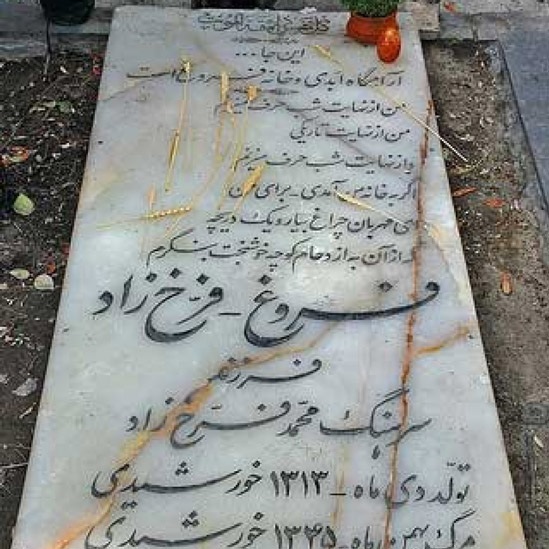 این جا ...
آرامگاه ابدی و خانه فروغ است
من از نهایت شب حرف میزنم
من از نهایت تاریکی
و از نهایت شب حرف میزنم
اگر به خانه من آمدی برای من
ای مهربان چراغ بیار و یک دریچه
که از آن به ازدحام کوچه خوشبخت بنگرم
فروغ - فرّخ زاد
فرزند
سرهنگ محمّد فرّخ زاد
تولّد دی ماه - ۱۳۱۳ خورشیدی
مرگ بهمن ماه - ۱۳۴۵ خورشیدی